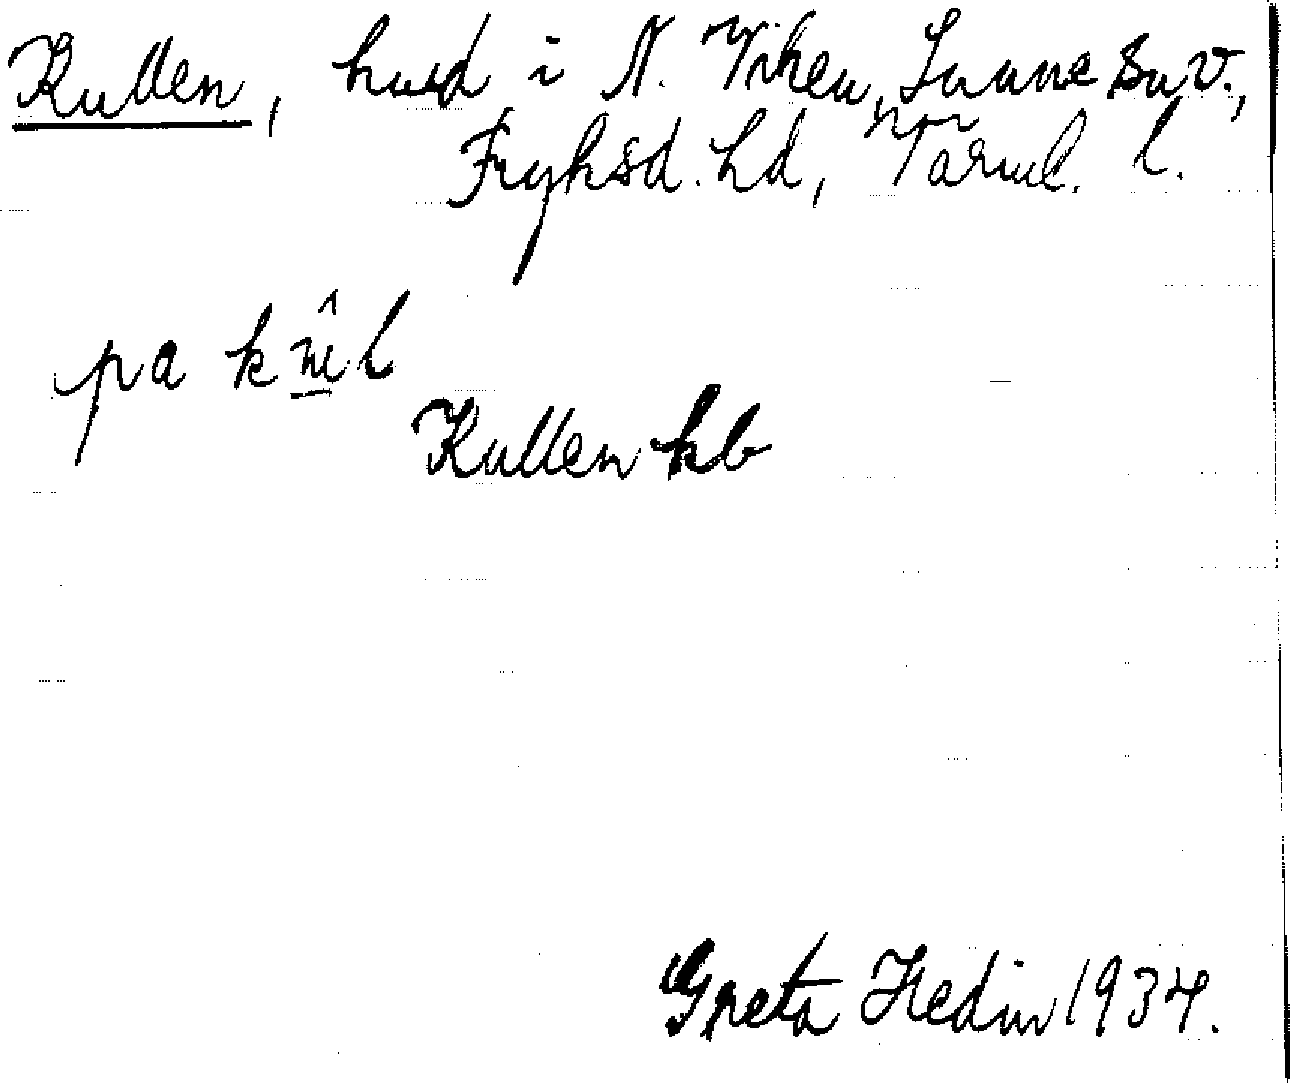 Kullen, husd i N. Viken, Lunne Sn V.,
Fryksd. hd, Värml. l.
pa
Kullen kb
Greta Hedin 1934.